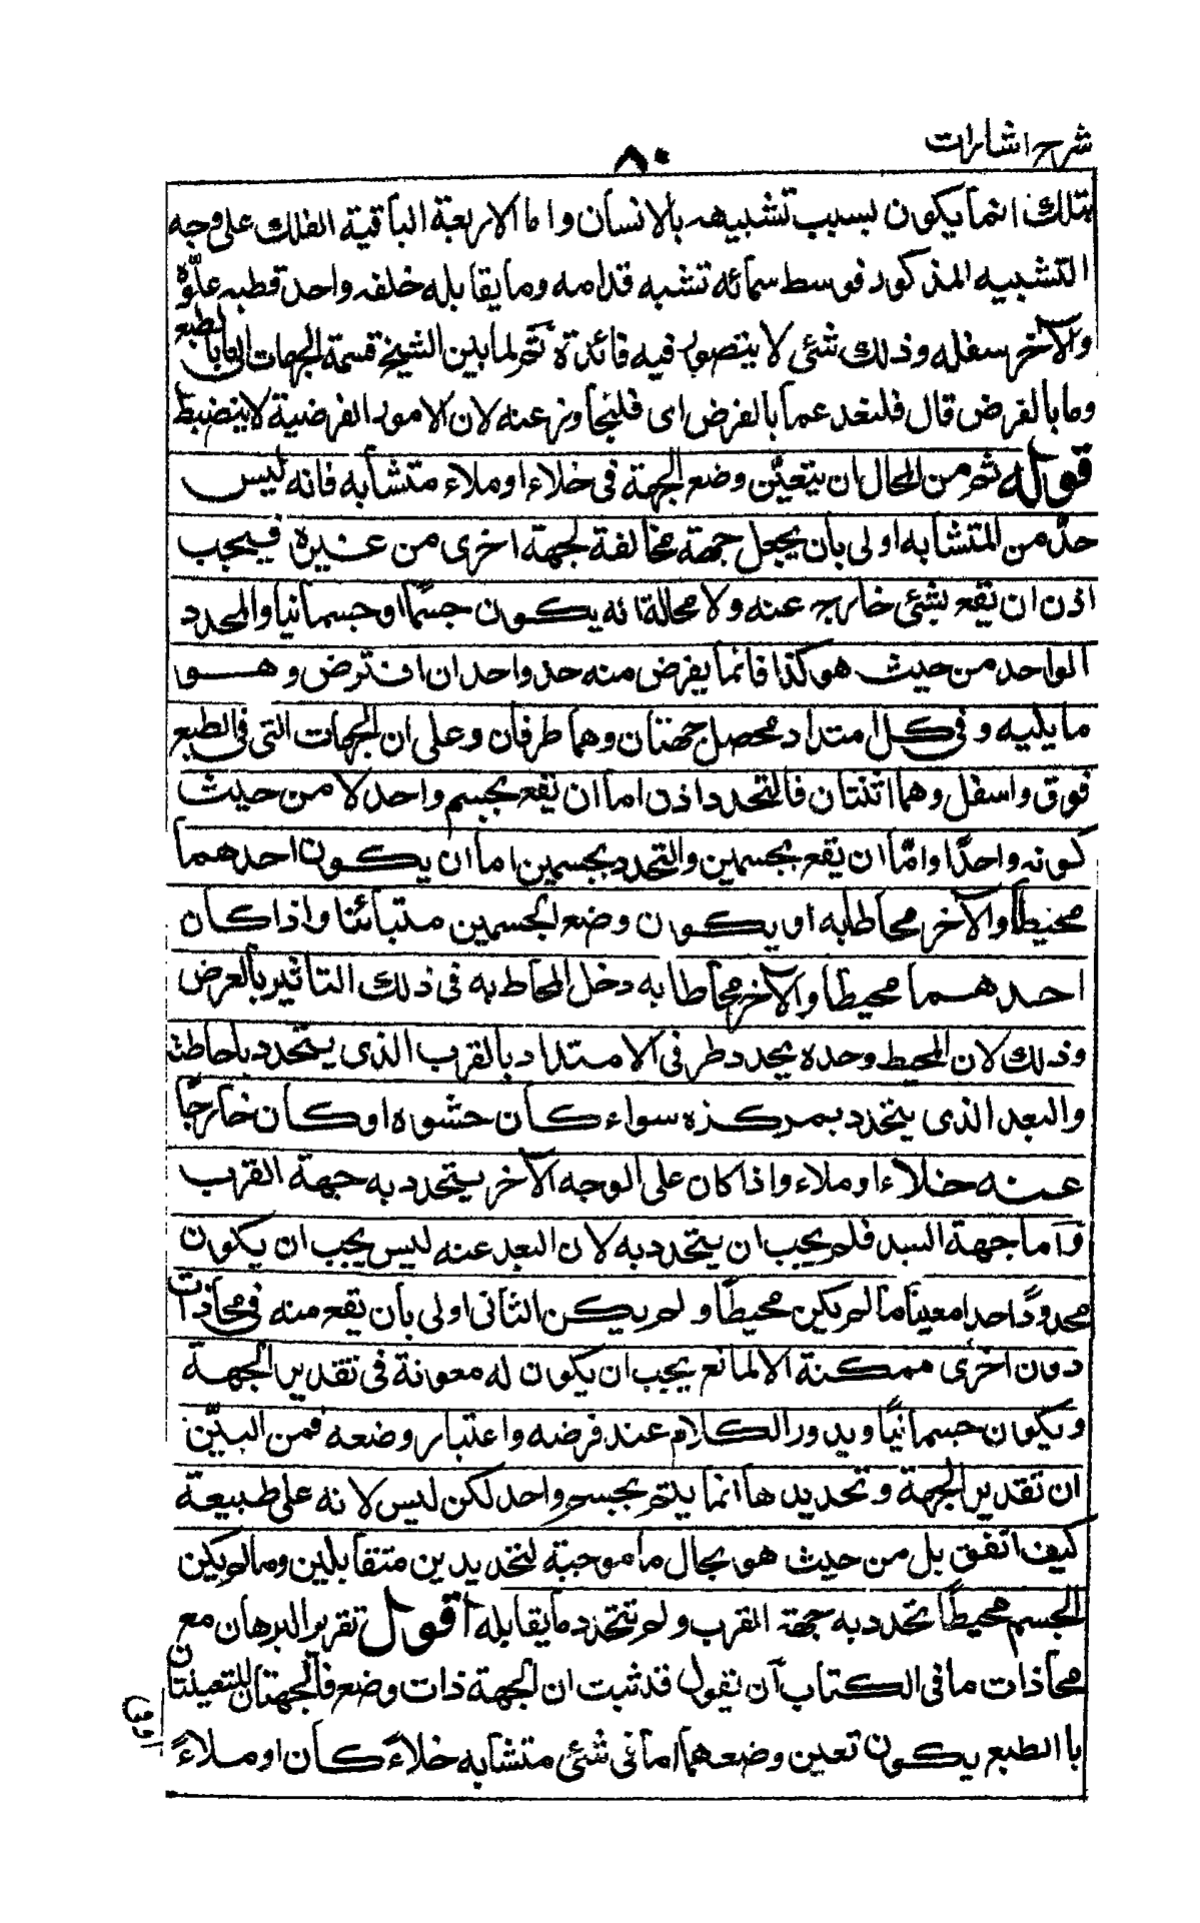 شرح اشارات
٨٠
بتلك انما يكون بسبب تشبيهه بالانسان واما الاربعة الباقية الفلك على وجه
التشبيه المذكور فوسط سمائه تشبه قدامه وما يقابله خلفه واحد قطبيه علوّه
والآخر سفله وذلك شئ لا يتصور فيه فائدة ثم لما بين الشيخ قسمة الجهات الى ما بالطبع
وما بالفرض قال فلنعد عما بالفرض اى فلنجاوز عنه لان الامور الفرضية لا ينضبط
قوله ثم من المحال ان يتعيّن وضع الجهة فى خلاء او ملاء متشابه فانه ليس
حدٌ من المتشابه اولى بان يجعل جهة مخالفة لجهة اخرى من غيره فيجب
اذن ان تقع بشئ خارج عنه ولا محالة انه يكون جسمًا او جسمانيا والمحدد
الواحد من حيث هو كذا فانما يفرض منه حد واحد ان افترض وهو
ما يليه وفى كل امتداد محصل جهتان وهما طرفان وعلى ان الجهات التى فى الطبع
فوق واسفل وهما اثنتان فالتحدد اذن اما ان يقع بجسم واحد لا من حيث
كونه واحدًا وامّا ان يقع بجسمين والتحدد بجسمين اما ان يكون احدهما
محيطًا والآخر محاطا به او يكون وضع الجسمين متبائنا واذا كان
احدهما محيطا والآخر محاطا به دخل المحاط به فى ذلك التاثير بالعرض
وذلك لان المحيط وحده يحدد طرفى الامتداد بالقرب الذى يتحدد باحاطته
والبعد الذى يتحدد بمركزه سواء كان حشوه او كان خارجًا
عنه خلاء او ملاء واذا كان على الوجه الآخر يتحدد به جهة القرب
وآما جهة البعد فلم يجب ان يتحدد به لان البعد عنه ليس يجب ان يكون
محدودًا حدا معينا ما لم يكن محيطًا ولم يكن الثانى اولى بان يقع منه فى محاذات
دون اخرى ممكنة الا لمانع يجب ان يكون له معونة فى تقدير الجهة
ويكون جسمانيًا ويدور الكلام عند فرضه واعتبار وضعه فمن البيّن
ان تقدير الجهة وتحديدها انما يتم بجسم واحد لكن ليس لانه على طبيعة
كيف اتفق بل من حيث هو بحال ما موجبة لتحديدين متقابلين وما لم يكن
الجسم محيطًا تحدد به جهة القرب ولم تتحدد ما يقابله اقول تقرير البرهان مع
محاذات ما فى الكتاب آن نقول قد ثبت ان الجهة ذات وضع فالجهتان المتعينتان
با الطبع يكون تعين وضعهما اما فى شئ متشابه خلاءً كان او ملاءً